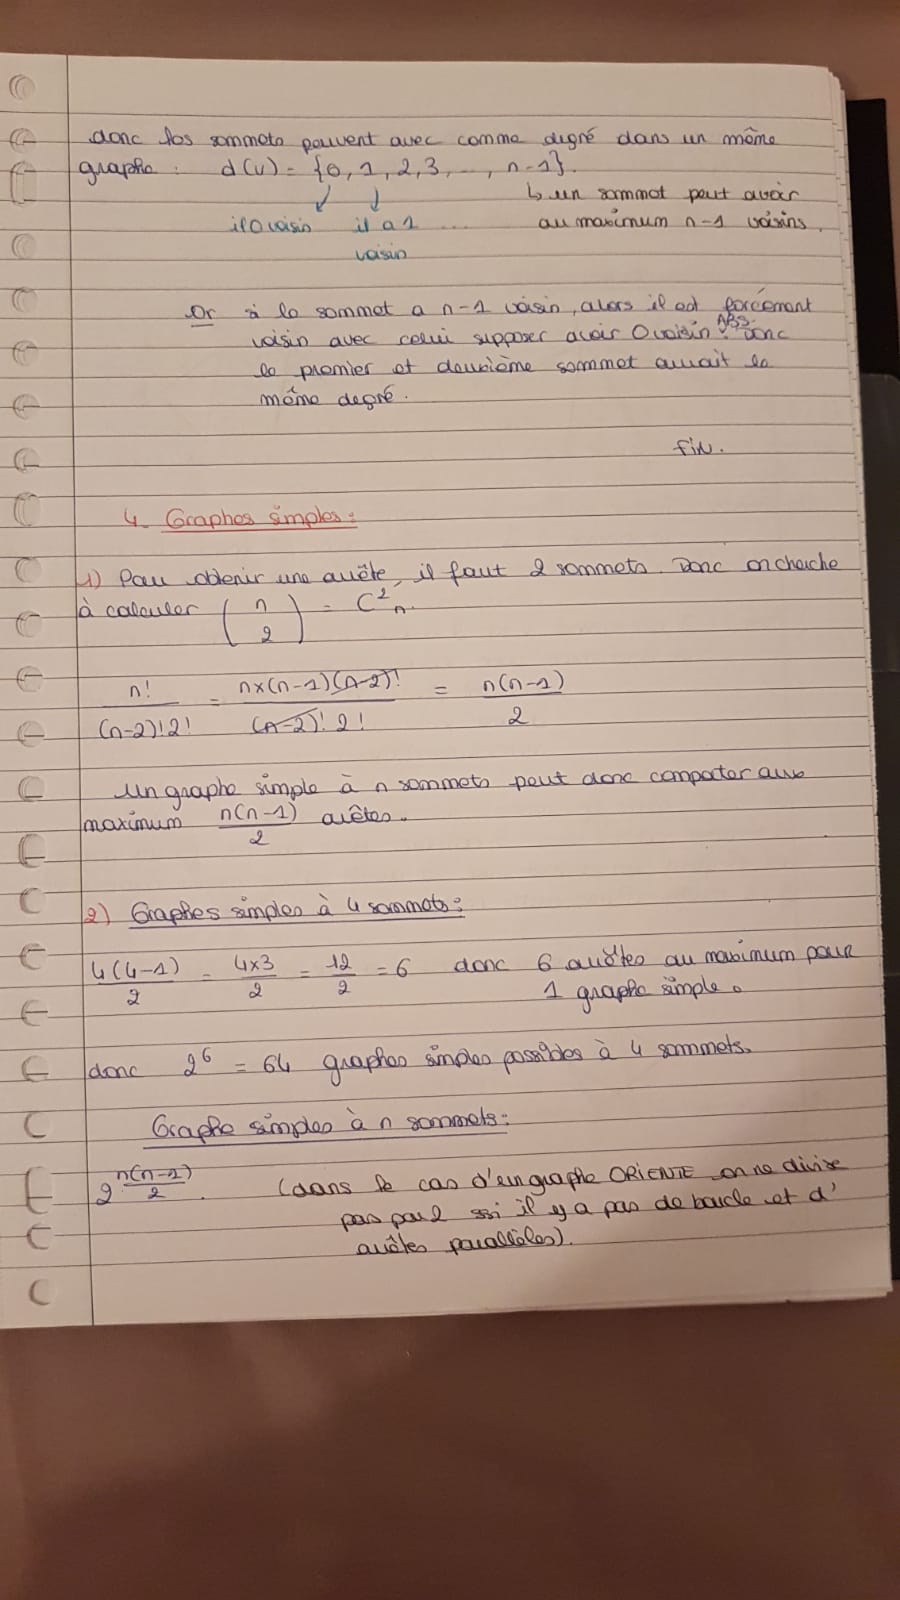 donc les sommets peuvent avec comme degré dans un même
graphe : d(v) = {0, 1, 2, 3, ..., n-1}.
↳ un sommet peut avoir
il 0 voisin il a 1 ... au maximum n-1 voisins.
voisin
Or si le sommet a n-1 voisin, alors il est forcément
voisin avec celui supposer avoir 0 voisin ABS. Donc
le premier et deuxième sommet aurait le
même degré.
fin.
4. Graphes simples :
1) Pour obtenir une arête, il faut 2 sommets. Donc on cherche
à calculer (n 2) = C²n.
n!/(n-2)!2! = n×(n-1)(n-2)!/(n-2)!2! = n(n-1)/2
Un graphe simple à n sommets peut donc comporter aux
maximum n(n-1)/2 arêtes.
2) Graphes simples à 4 sommets :
4(4-1)/2 = 4×3/2 = 12/2 = 6 donc 6 arêtes au maximum pour
1 graphe simple.
donc 2⁶ = 64 graphes simples possibles à 4 sommets.
Graphe simples à n sommets :
2^(n(n-1)/2). (dans le cas d'un graphe ORIENTE on ne divise
pas par 2 ssi il y a pas de boucle et d'
arêtes parallèles).